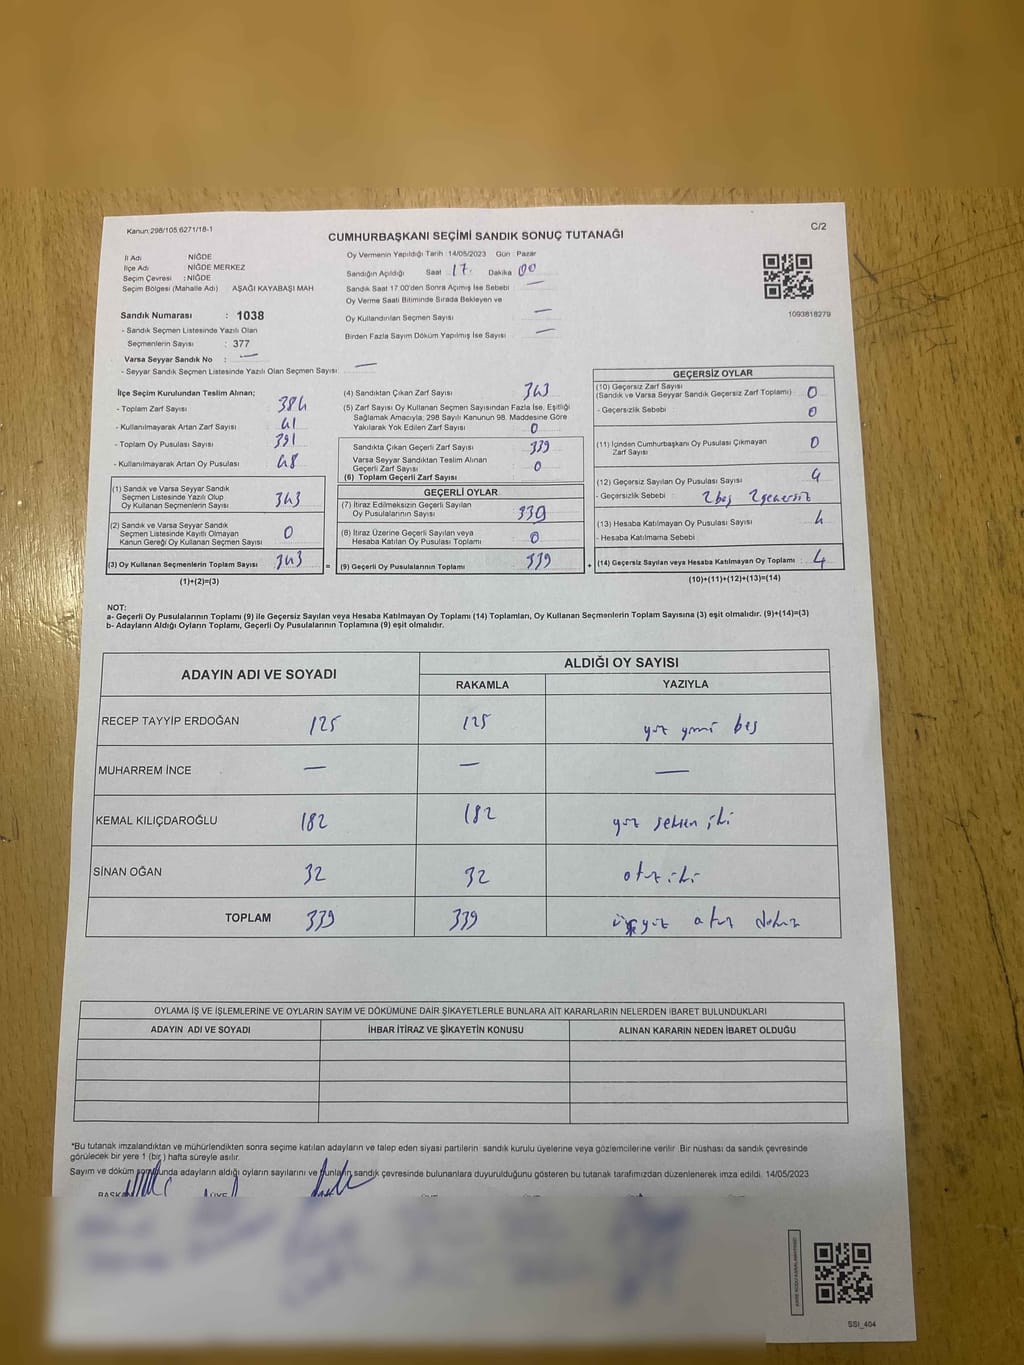 Kanun:298/105;6271/18-1
C/2
CUMHURBAŞKANI SEÇİMİ SANDIK SONUÇ TUTANAĞI
İl Adı : NİĞDE
İlçe Adı : NİĞDE MERKEZ
Seçim Çevresi : NİĞDE
Seçim Bölgesi (Mahalle Adı) : AŞAĞI KAYABAŞI MAH
Sandık Numarası : 1038
- Sandık Seçmen Listesinde Yazılı Olan
Seçmenlerin Sayısı : 377
Varsa Seyyar Sandık No : —
- Seyyar Sandık Seçmen Listesinde Yazılı Olan Seçmen Sayısı: —
Oy Vermenin Yapıldığı Tarih :14/05/2023 Gün : Pazar
Sandığın Açıldığı Saat : 17 Dakika : 00
Sandık Saat 17.00'den Sonra Açmış İse Sebebi : —
Oy Verme Saati Bitiminde Sırada Bekleyen ve
Oy Kullandırılan Seçmen Sayısı —
Birden Fazla Sayım Döküm Yapılmış İse Sayısı : —
1093818279
İlçe Seçim Kurulundan Teslim Alınan;
- Toplam Zarf Sayısı : 384
- Kullanılmayarak Artan Zarf Sayısı : 41
- Toplam Oy Pusulası Sayısı : 391
- Kullanılmayarak Artan Oy Pusulası : 48
(1) Sandık ve Varsa Seyyar Sandık
Seçmen Listesinde Yazılı Olup
Oy Kullanan Seçmenlerin Sayısı : 343
(2) Sandık ve Varsa Seyyar Sandık
Seçmen Listesinde Kayıtlı Olmayan
Kanun Gereği Oy Kullanan Seçmen Sayısı : 0
(3) Oy Kullanan Seçmenlerin Toplam Sayısı : 343
(1)+(2)=(3)
(4) Sandıktan Çıkan Zarf Sayısı : 343
(5) Zarf Sayısı Oy Kullanan Seçmen Sayısından Fazla İse, Eşitliği
Sağlamak Amacıyla, 298 Sayılı Kanunun 98. Maddesine Göre
Yakılarak Yok Edilen Zarf Sayısı : 0
Sandıkta Çıkan Geçerli Zarf Sayısı : 339
Varsa Seyyar Sandıktan Teslim Alınan
Geçerli Zarf Sayısı : 0
(6) Toplam Geçerli Zarf Sayısı :
GEÇERLİ OYLAR
(7) İtiraz Edilmeksizin Geçerli Sayılan
Oy Pusulalarının Sayısı : 339
(8) İtiraz Üzerine Geçerli Sayılan veya
Hesaba Katılan Oy Pusulası Toplamı : 0
= (9) Geçerli Oy Pusulalarının Toplamı : 339
GEÇERSİZ OYLAR
(10) Geçersiz Zarf Sayısı
(Sandık ve Varsa Seyyar Sandık Geçersiz Zarf Toplamı) : 0
- Geçersizlik Sebebi : 0
(11) İçinden Cumhurbaşkanı Oy Pusulası Çıkmayan
Zarf Sayısı : 0
(12) Geçersiz Sayılan Oy Pusulası Sayısı : 4
- Geçersizlik Sebebi : 2 boş 2 geçersiz
(13) Hesaba Katılmayan Oy Pusulası Sayısı : 4
- Hesaba Katılmama Sebebi :
+ (14) Geçersiz Sayılan veya Hesaba Katılmayan Oy Toplamı : 4
(10)+(11)+(12)+(13)=(14)
NOT:
a- Geçerli Oy Pusulalarının Toplamı (9) ile Geçersiz Sayılan veya Hesaba Katılmayan Oy Toplamı (14) Toplamları, Oy Kullanan Seçmenlerin Toplam Sayısına (3) eşit olmalıdır. (9)+(14)=(3)
b- Adayların Aldığı Oyların Toplamı, Geçerli Oy Pusulalarının Toplamına (9) eşit olmalıdır.
ADAYIN ADI VE SOYADI
ALDIĞI OY SAYISI
RAKAMLA YAZIYLA
RECEP TAYYİP ERDOĞAN 125 125 yüz yirmi beş
MUHARREM İNCE — — —
KEMAL KILIÇDAROĞLU 182 182 yüz seksen iki
SİNAN OĞAN 32 32 otuz iki
TOPLAM 339 339 üçyüz otuz dokuz
OYLAMA İŞ VE İŞLEMLERİNE VE OYLARIN SAYIM VE DÖKÜMÜNE DAİR ŞİKAYETLERLE BUNLARA AİT KARARLARIN NELERDEN İBARET BULUNDUKLARI
ADAYIN ADI VE SOYADI İHBAR İTİRAZ VE ŞİKAYETİN KONUSU ALINAN KARARIN NEDEN İBARET OLDUĞU
*Bu tutanak imzalandıktan ve mühürlendikten sonra seçime katılan adayların ve talep eden siyasi partilerin sandık kurulu üyelerine veya gözlemcilerine verilir. Bir nüshası da sandık çevresinde
görülecek bir yere 1 (bir) hafta süreyle asılır.
Sayım ve döküm sonunda adayların aldığı oyların sayılarını ve bunların sandık çevresinde bulunanlara duyurulduğunu gösteren bu tutanak tarafımızdan düzenlenerek imza edildi. 14/05/2023
BAŞKAN ÜYE
SSI_404